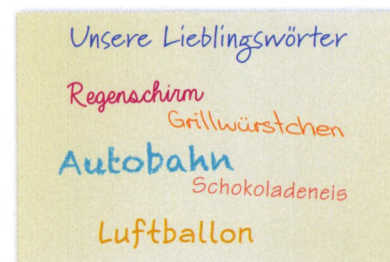 Unsere Lieblingswörter
Regenschirm
Grillwürstchen
Autobahn
Schokoladeneis
Luftballon